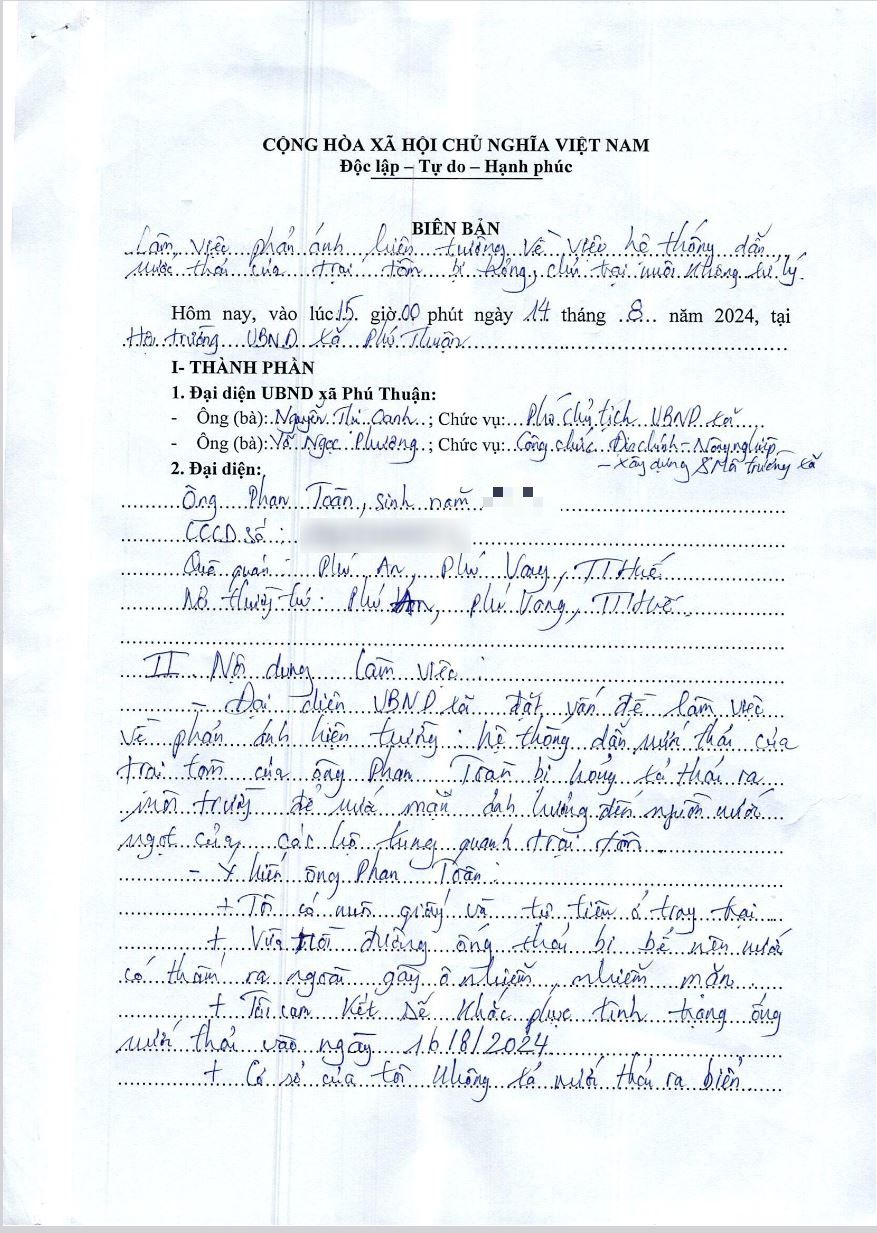 CỘNG HÒA XÃ HỘI CHỦ NGHĨA VIỆT NAM
Độc lập – Tự do – Hạnh phúc
BIÊN BẢN
Làm việc phản ánh hiện tượng về việc hệ thống dẫn
nước thải của trại tôm bị hỏng, chủ trại nuôi không xử lý
Hôm nay, vào lúc 15 giờ 00 phút ngày 14 tháng 8 năm 2024, tại
Hội trường UBND xã Phú Thuận
I- THÀNH PHẦN
1. Đại diện UBND xã Phú Thuận:
- Ông (bà): Nguyễn Thị Oanh ; Chức vụ: Phó Chủ tịch UBND xã
- Ông (bà): Võ Ngọc Phương ; Chức vụ: Công chức Địa chính - Nông nghiệp
- Xây dựng & Môi trường xã
2. Đại diện:
Ông Phan Toàn, sinh năm
CCCD số :
Quê quán : Phú An, Phú Vang, TT Huế
Nơi thường trú : Phú An, Phú Vang, TT Huế
II. Nội dung làm việc :
- Đại diện UBND xã đặt vấn đề làm việc
về phản ánh hiện tượng : hệ thống dẫn nước thải của
trại tôm của ông Phan Toàn bị hỏng xả thải ra
môi trường để nước mặn ảnh hưởng đến nguồn nước
ngọt của các hộ xung quanh trại tôm.
- Ý kiến ông Phan Toàn :
+ Tôi có nuôi giống và tự tiện ở trang trại
+ Vừa rồi đường ống thải bị bể nên nước
có thấm ra ngoài gây ô nhiễm, nhiễm mặn.
+ Tôi cam kết sẽ khắc phục tình trạng ống
nước thải vào ngày 16/8/2024
+ Cơ sở của tôi không xả nước thải ra biển